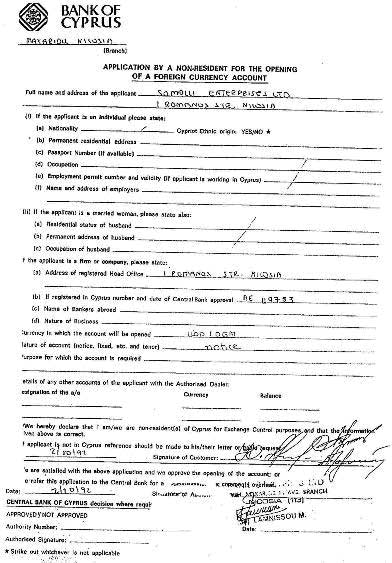 BANK OF
CYPRUS
MAKARIOU NICOSIA
(Branch)
APPLICATION BY A NON-RESIDENT FOR THE OPENING
OF A FOREIGN CURRENCY ACCOUNT
Full name and address of the applicant ENTERPRISES LTD
1 ROMANOS STR. NICOSIA
(i) If the applicant is an individual please state:
(a) Nationality Cypriot Ethnic origin: YES/NO ★
(b) Permanent residential address
(c) Passport Number (if available)
(d) Occupation
(e) Employment permit number and validity (if applicant is working in Cyprus)
(f) Name and address of employers
(ii) If the applicant is a married woman, please state also:
(a) Residential status of husband
(b) Permanent address of husband
(c) Occupation of husband
f the applicant is a firm or company, please state:
(a) Address of registered Head Office 1 ROMANOS STR. NICOSIA
(b) If registered in Cyprus number and date of Central Bank approval AE
(c) Name of Bankers abroad
(d) Nature of Business
urrency in which the account will be opened
ature of account (notice, fixed, etc. and tenor) notice
urpose for which the account is required
etails of any other accounts of the applicant with the Authorised Dealer:
esignation of the a/c Currency Balance
We hereby declare that I am/we are non-resident(s) of Cyprus for Exchange Control purposes and that the information
iven above is correct.
f applicant is not in Cyprus reference should be made to his/their letter or request
2/10/92 Signature of Customer:
e are satisfied with the above application and we approve the opening of the account; or
e refer this application to the Central Bank for a
Date: 2/10/92 BRANCH
CENTRAL BANK OF CYPRUS decision where required NICOSIA
APPROVED/NOT APPROVED
Authority Number: M.
Authorised Signature: Date:
★ Strike out whichever is not applicable